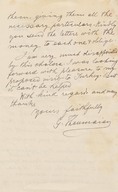 them giving them all the
necessary particulars. Kindly
you send the letters with the
money to each one &
I am very much disappointed
by this cholera I was looking
forward with pleasure to my
proposed visit to Turkey. But
it can't be helped.
With kind regards and many
thanks
Yours faithfully